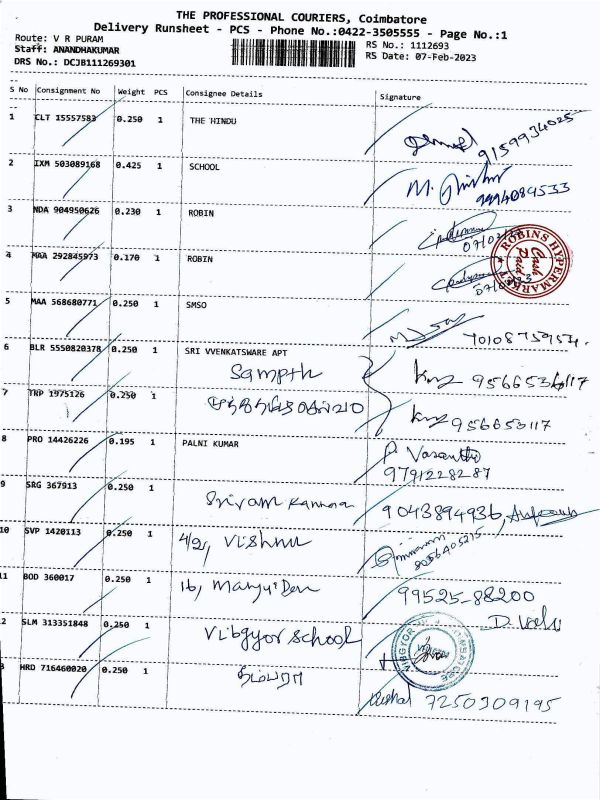 THE PROFESSIONAL COURIERS, Coimbatore
Delivery Runsheet - PCS - Phone No.:0422-3505555 - Page No.:1
Route: V R PURAM
RS No.: 1112693
Staff: ANANDHAKUMAR
RS Date: 07-Feb-2023
DRS No.: DCJB111269301
S No Consignment No Weight PCS Consignee Details Signature
1 CLT 15557583 0.250 1 THE HINDU 9159934025
2 IXM 503089168 0.425 1 SCHOOL M. 9994089533
3 NDA 904950626 0.230 1 ROBIN
4 MAA 292845973 0.170 1 ROBIN
ROBINS HYPERMARKET
Cash Paid
5 MAA 568680771 0.250 1 SMSO
6 BLR 5550820378 0.250 1 SRI VVENKATSWARE APT
Sampth
7 TRP 1975126 0.250 1 956653117
8 PRO 14426226 0.195 1 PALNI KUMAR P. Vasanthi
9791228287
9 SRG 367913 0.250 1 Sriram Kannan 9043894936,
10 SVP 1420113 0.250 1 4/9, Vishnu 8056405215
11 BOD 360017 0.250 1 16, 99525-88200
12 SLM 313351848 0.250 1 Vibgyor School
VIBGYOR
13 HRD 716460020 0.250 1 7250909195